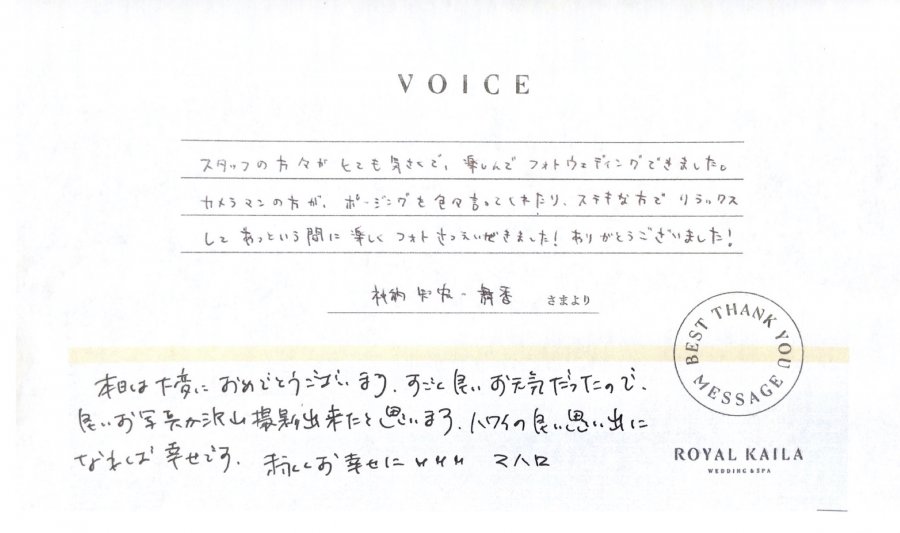 VOICE
スタッフの方々がとても気さくで、楽しんでフォトウェディングできました。
カメラマンの方が、ポージングを色々言ってくれたり、ステキな方でリラックス
してあっという間に楽しくフォトさつえいできました！ありがとうございました！
舞香 さまより
BEST THANK YOU MESSAGE
本日は大変におめでとうございます。すごく良いお天気だったので、
良いお写真が沢山撮影出来たと思います。ハワイの良い思い出に
なれば幸せです。末永くお幸せに マハロ
ROYAL KAILA
WEDDING & SPA